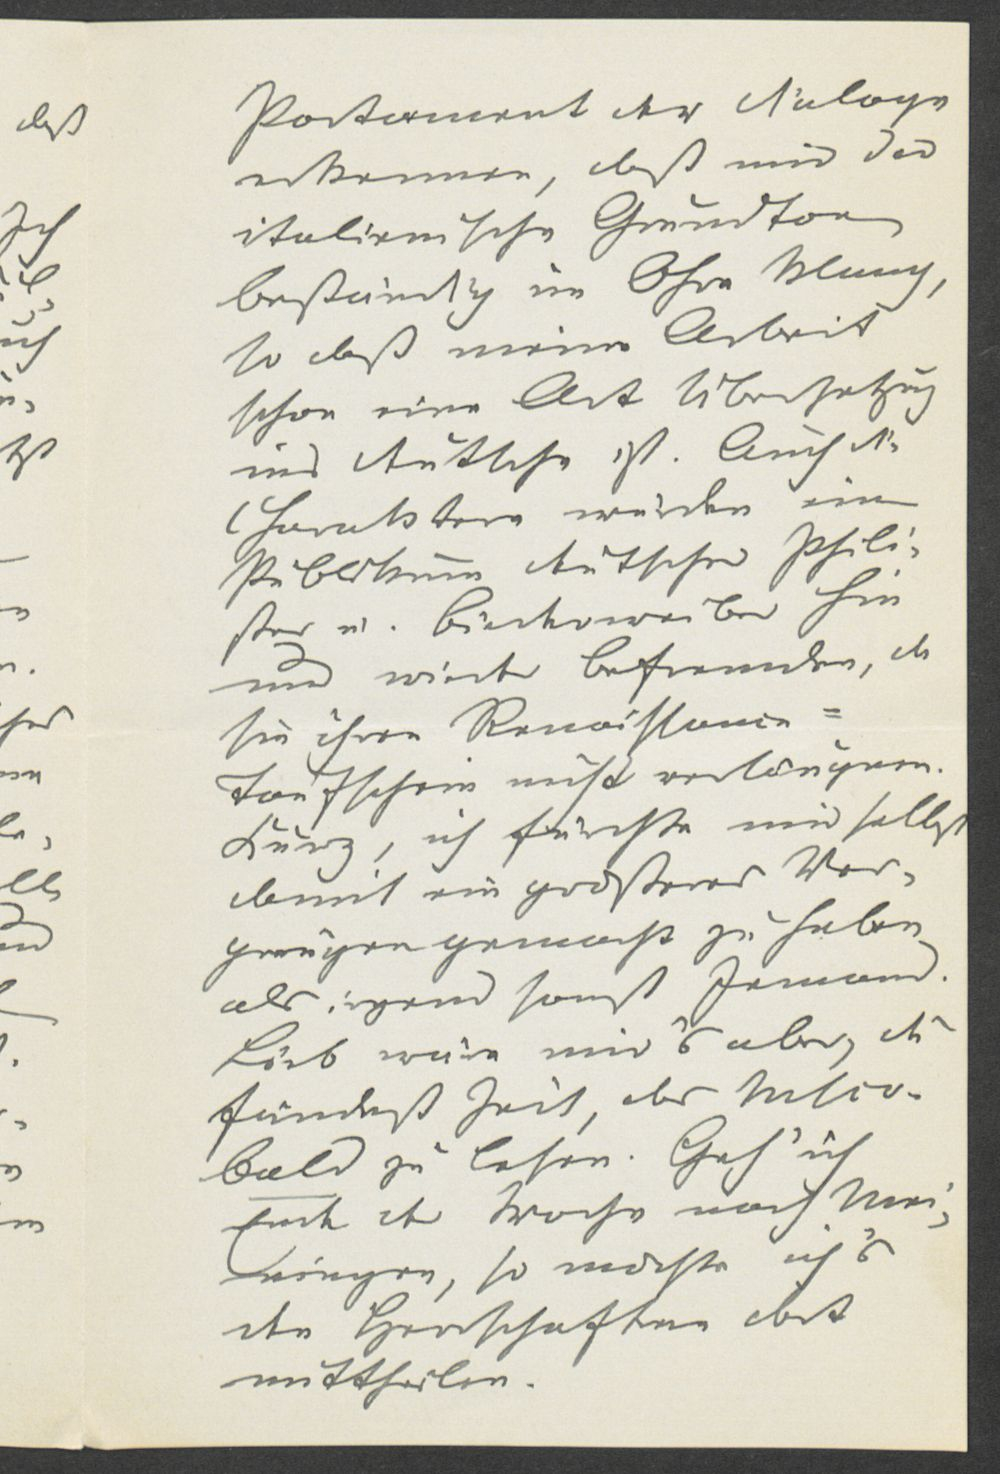 daß
Ich
auch
Portament der Dialoge
erkennen, daß mir der
italienische Grundton
beständig im Ohre klang,
so daß meine Arbeit
schon eine Art Übersetzung
ins Deutsche ist. Auch die
Charaktere würden ein
Publikum deutscher Phili-
ster u. hin
und wieder befremden, da
sie ihren Renaissance=
Taufschein nicht verläugnen.
Kurz, ich fürchte mir selbst
damit ein größeres Ver-
gnügen gemacht zu haben,
als irgend sonst Jemand.
Lieb wäre mir's aber, Du
fändest Zeit, das
bald zu lesen. Geh' ich
Ende der Woche nach Mei-
ningen, so möchte ich's
den Herrschaften dort
mittheilen.